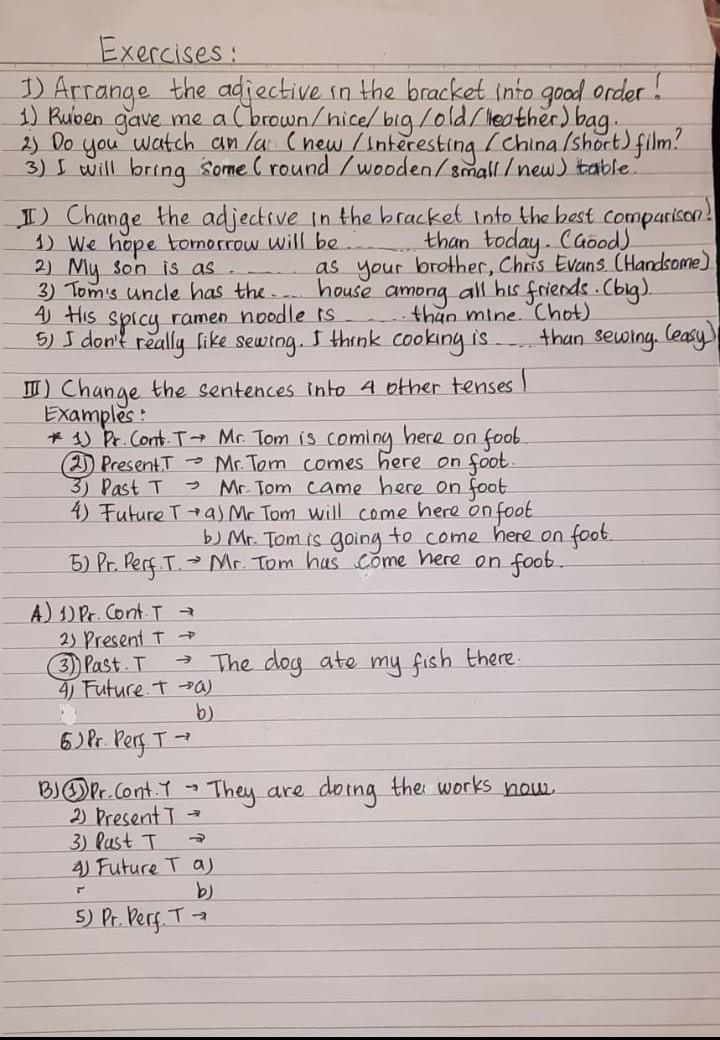 Exercises :
I) Arrange the adjective in the bracket into good order !
1) Ruben gave me a (brown/nice/big/old/leather) bag.
2) Do you watch an/a (new/interesting/china/short) film?
3) I will bring some (round/wooden/small/new) table.
II) Change the adjective in the bracket into the best comparison!
1) We hope tomorrow will be ........ than today. (Good)
2) My son is as ........ as your brother, Chris Evans. (Handsome)
3) Tom's uncle has the .... house among all his friends. (big)
4) His spicy ramen noodle is ........ than mine. (hot)
5) I don't really like sewing. I think cooking is .... than sewing. (easy)
III) Change the sentences into 4 other tenses !
Examples :
* 1) Pr. Cont. T → Mr. Tom is coming here on foot
2) Present T → Mr. Tom comes here on foot.
3) Past T → Mr. Tom came here on foot
4) Future T → a) Mr Tom will come here on foot
b) Mr. Tom is going to come here on foot.
5) Pr. Perf. T. → Mr. Tom has come here on foot.
A) 1) Pr. Cont. T →
2) Present T →
3) Past. T → The dog ate my fish there.
4) Future. T → a)
b)
5) Pr. Perf. T →
B) 1) Pr. Cont. T → They are doing the works now.
2) Present T →
3) Past T →
4) Future T a)
b)
5) Pr. Perf. T →